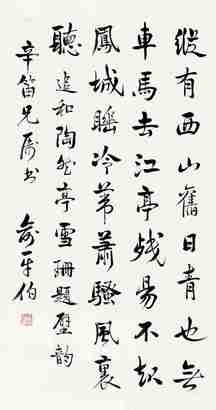 縱有西山舊日青也無
車馬去江亭殘陽不起
鳳城睡冷葦蕭騷風裏
聽 追和陶然亭雪珊題壁韻
辛笛兄屬书 俞平伯